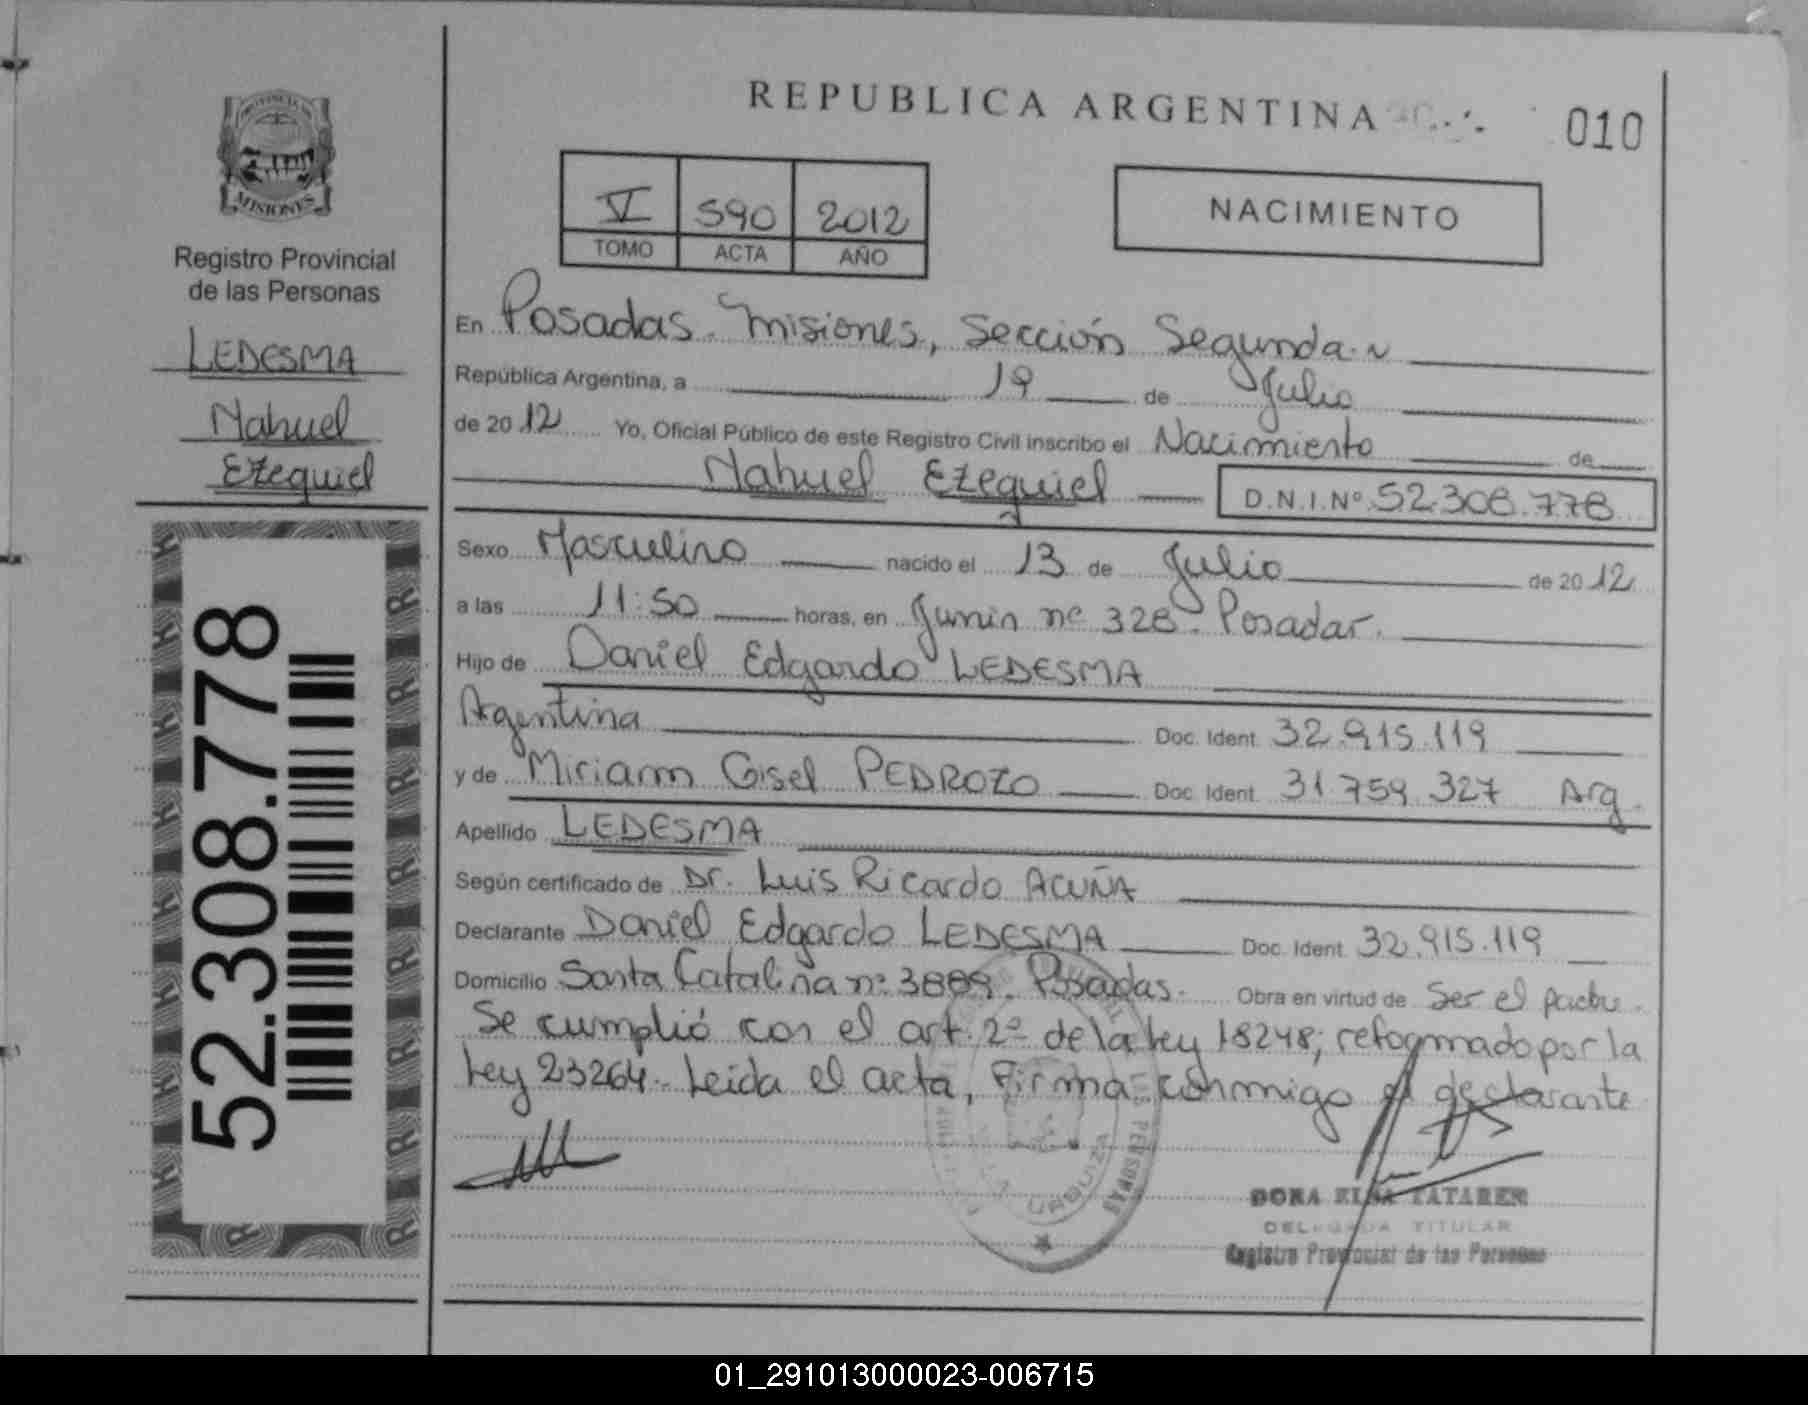 PROVINCIA DE
MISIONES
Registro Provincial
de las Personas
LEDESMA
Nahuel
Ezequiel
52.308.778
REPUBLICA ARGENTINA
010
V 590 2012
TOMO ACTA AÑO
NACIMIENTO
En Posadas. Misiones, Sección Segunda
República Argentina, a 19 de Julio
de 2012 Yo, Oficial Público de este Registro Civil inscribo el Nacimiento de
Nahuel Ezequiel D.N.I.Nº 52.308.778
Sexo Masculino nacido el 13 de Julio de 2012
a las 11:50 horas, en Junín nº 328. Posadas.
Hijo de Daniel Edgardo LEDESMA
Argentina Doc. Ident. 32.915.119
y de Miriam Gisel PEDROZO Doc. Ident. 31.759.327 Arg.
Apellido LEDESMA
Según certificado de Dr. Luis Ricardo ACUÑA
Declarante Daniel Edgardo LEDESMA Doc. Ident. 32.915.119
Domicilio Santa Catalina nº Posadas. Obra en virtud de Ser el padre.
Se cumplió con el art. 2º de la Ley 18248; reformado por la
Ley 23264. Leída el acta, firma conmigo el declarante
PERSONAS
URQUIZA
DORA ELSA TATAREN
DELEGADA TITULAR
Registro Provincial de las Personas
01_291013000023-006715